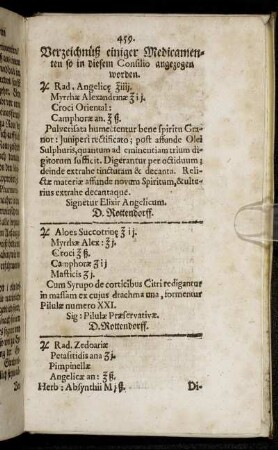 459.
Verzeichnüß einiger Medicamen-
ten so in diesem Consilio angezogen
worden.
℞ Rad. Angelicę ℥iiij.
Myrrhæ Alexandrinæ ℥ij.
Croci Oriental:
Camphoræ an. ℥ß.
Pulverisata humectentur bene spiritu Gra-
nor: Juniperi rectificato; post affunde Olei
Sulphuris, quantum ad eminentiam trium di-
gitorum sufficit. Digerantur per octiduum;
deinde extrahe tincturam & decanta. Reli-
ctæ materiæ affunde novum Spiritum, & ulte-
rius extrahe decantaque.
Signetur Elixir Angelicum.
D. Rottendorff.
℞ Aloes Succotrinę ℥ij.
Myrrhæ Alex: ℥j.
Croci ℥ß.
Camphoræ ʒij
Mastichis ʒj.
Cum Syrupo de corticibus Citri redigantur
in massam ex cujus drachma una, formentur
Pilulæ numero XXI.
Sig: Pilulæ Præservativæ.
D. Rottendorff.
℞ Rad. Zedoariæ
Petasitidis ana ℥j.
Pimpinellæ
Angelicæ an: ℥ß.
Herb: Absynthii Mjß.
Di-